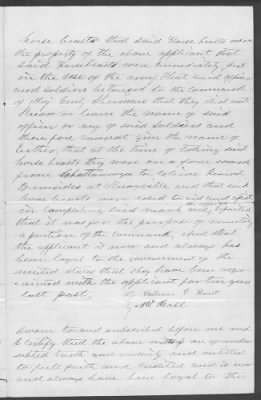 horse beasts that said Horse beasts were
the property of the above applicant that
said Horse beasts were immediately put
in the use of the army that said officer
and soldiers belonged to the command
of Maj Genl Sherman that they did not
Know or learn the name of said
officer or any of said soldiers and
therefore cannot give the name of
either, that at the time of taking said
horse beasts they were on a force march
from Chattanooga to relieve Genl
Burnsides at Knoxville and that said
horse beasts were used to aid and assist
in said march and,
that it was for the purpose of mounting
a portion of the command, And that
the applicant is now and always has
been loyal to the government of the
united states that they have been acqu-
ainted with the applicant for ten years
last past,
Sworn to and subscribed before me and
I certify that the above
truth and veracity and entitled
to full faith and credited and is now
and always have been loyal to the